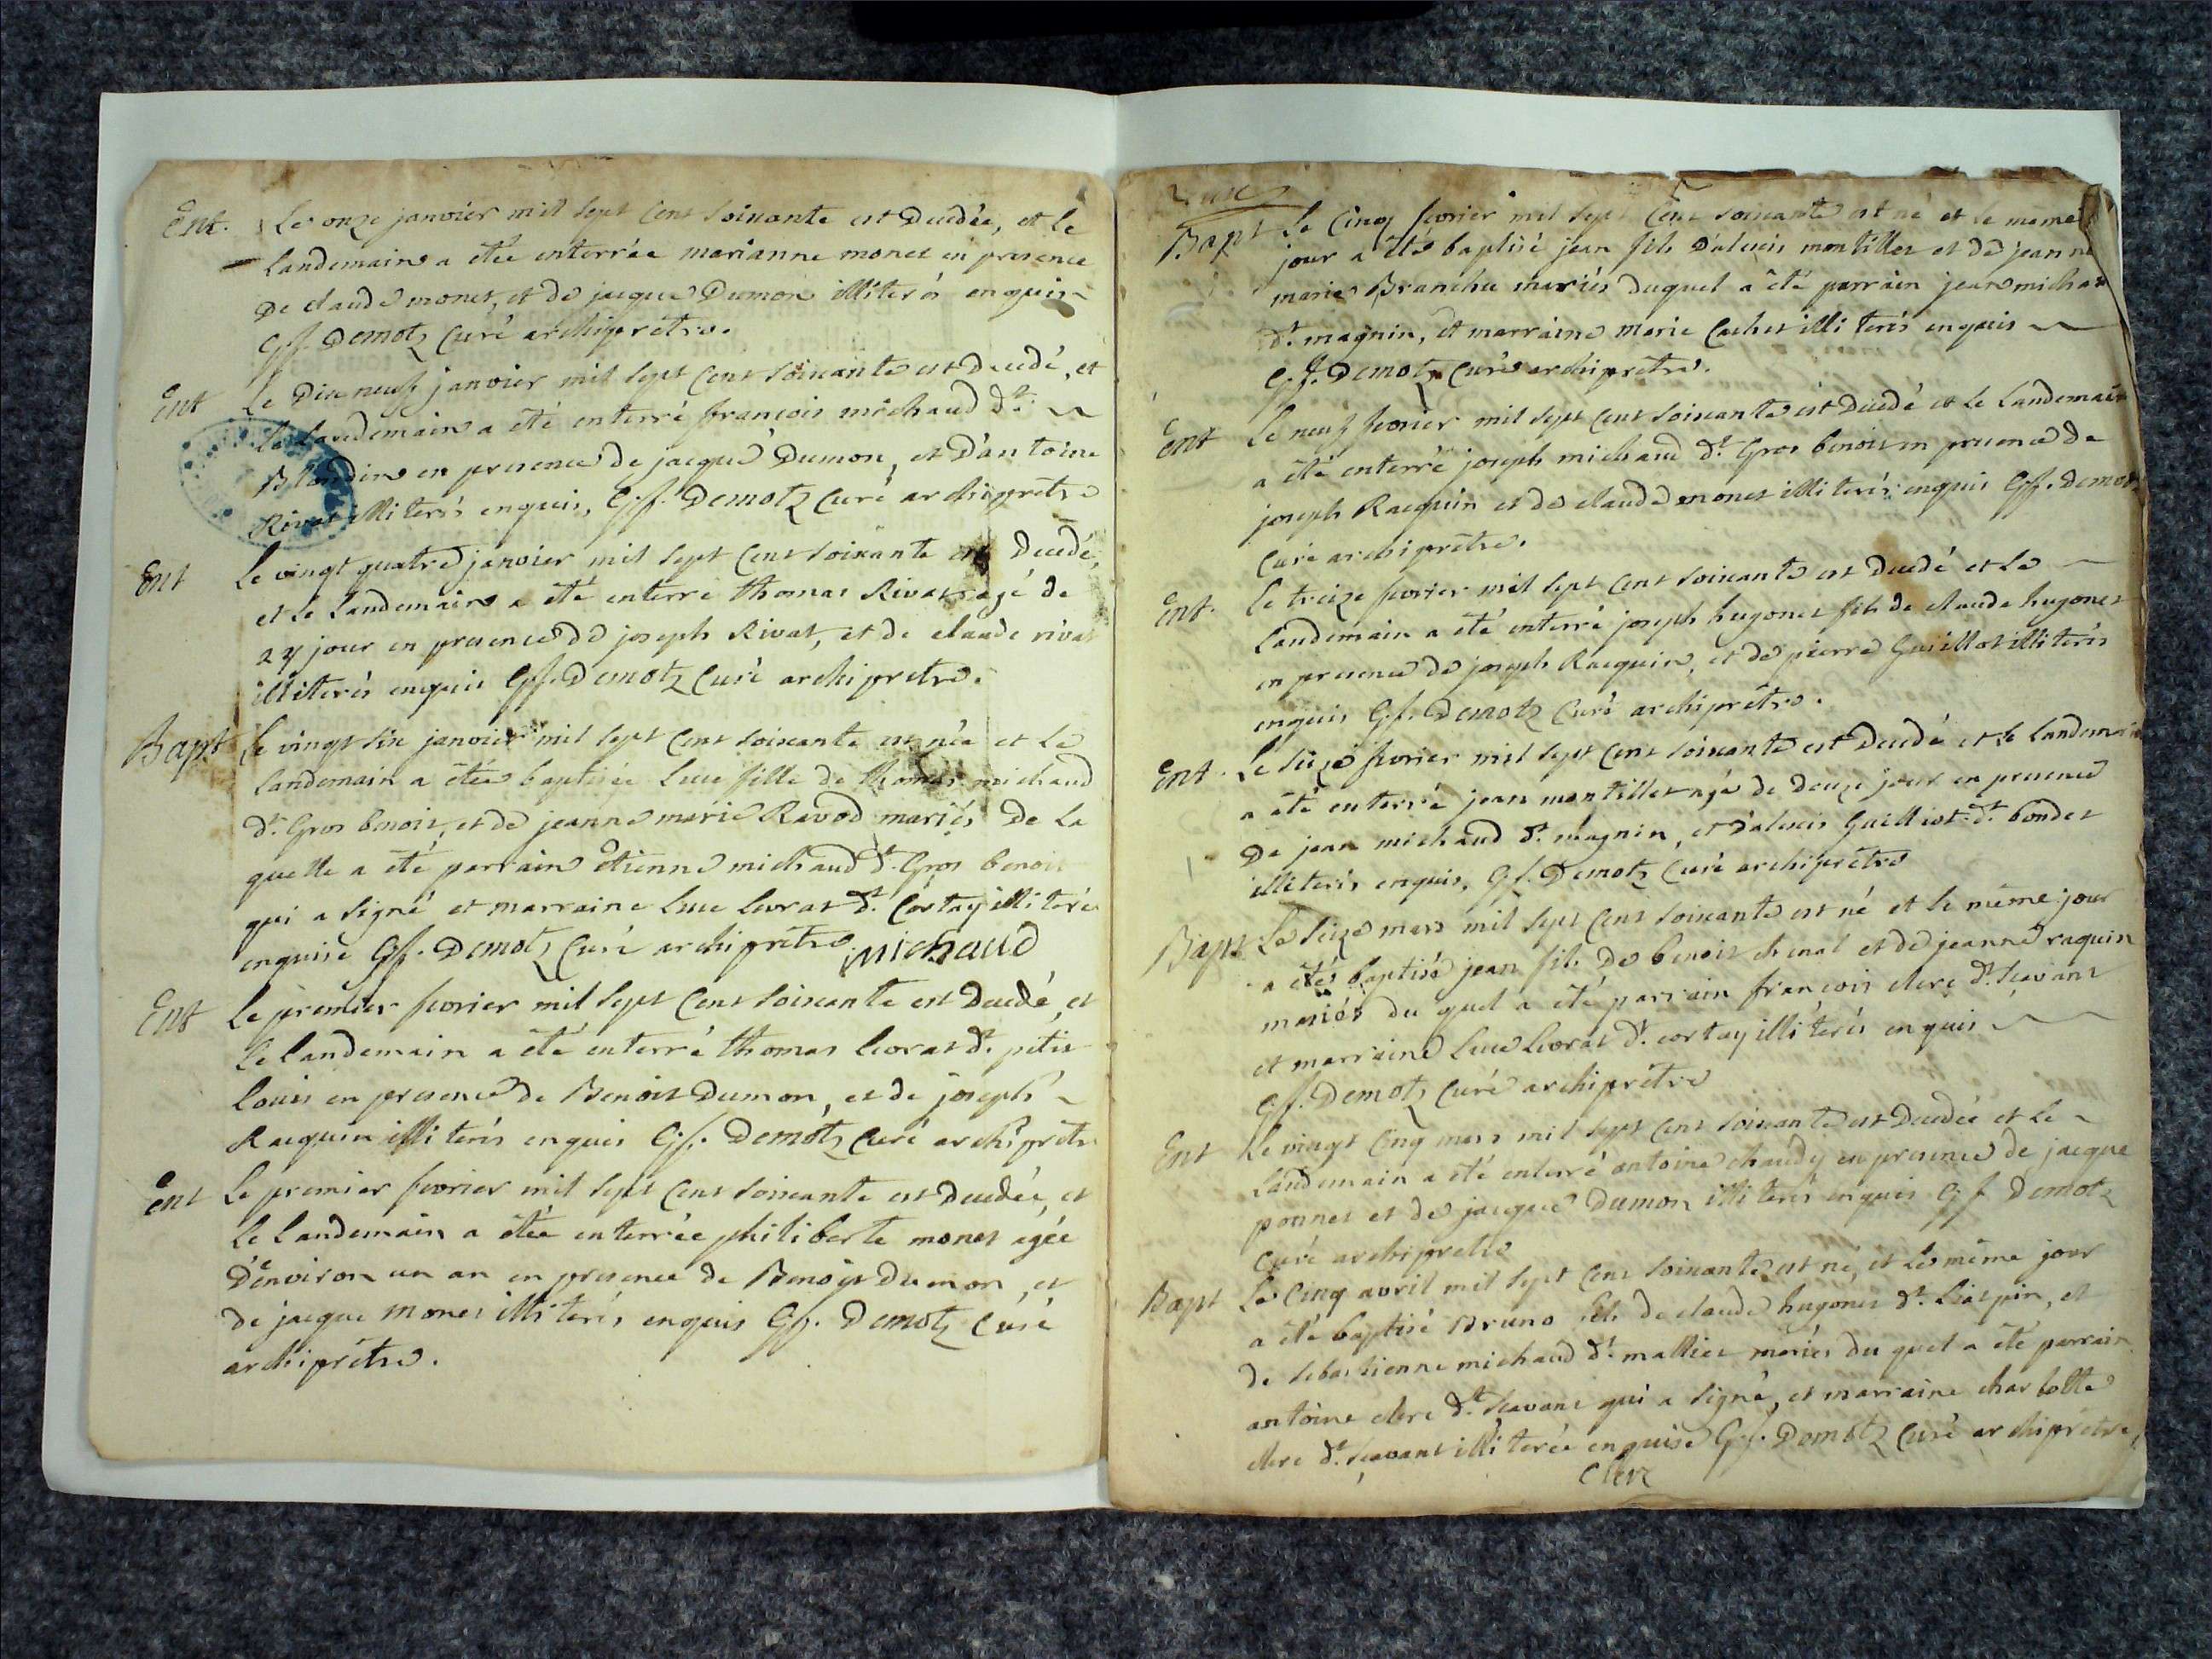 Ent. Le onze janvier mil sept cent soixante est decedée, et le
landemain a êtée enterrée marianne monet en presence
de claude monet, et de jacque Dumon illiterés enquis
Gf. Demotz curé archiprêtre.
Ent Le dix neuf janvier mil sept cent soixante est decedé, et
le landemain a êté enterré francois michaud dt.
Blondin en presence de jacque Dumon, et d'antoine
Rivat illiterés enquis, Gf. Demotz curé archiprêtre
Ent Le vingt quatre janvier mil sept cent soixante est decedé,
et le landemain a êté enterré thomas Rivat agé de
27 jour en presence de joseph Rivat, et de claude rivat
illiterés enquis Gf. Demotz curé archiprêtre.
Bapt Le vingt six janvier mil sept cent soixante est née et le
landemain a êtée baptisée Luce fille de thomas michaud
dt. Gros benoit, et de jeanne marie Ravod mariés de la
quelle a êté parrain êtienne michaud dt. Gros benoit
qui a signé et marraine Luce Levrat dt. Cortay illiterée
enquise Gf. Demotz curé archiprêtre michaud
Ent Le premier fevrier mil sept cent soixante est decedé, et
le landemain a êté enterré thomas Levrat dt. petit
Louis en presence de Benoit Dumon, et de joseph
Racquin illiterés enquis Gf. Demotz curé archiprêtre
Ent Le premier fevrier mil sept cent soixante est decedée, et
le landemain a êtée enterrée philiberte monet agée
d'environ un an en presence de Benoit Dumon, et
de jacque monet illiterés enquis Gf. Demotz curé
archiprêtre.
Bapt Le cinq fevrier mil sept cent soixante est né et le meme
jour a êté baptisé jean fils d'alexis montillet et de jeanne
marie Branche mariés duquel a êté parrain jean michau
dt. magnin, et marraine marie Cachet illiterés enquis
Gf. Demotz curé archiprêtre.
Ent Le neuf fevrier mil sept cent soixante est decedé et le landemain
a êté enterré joseph michaud dt. Gros benoit en presence de
joseph Racquin et de claude monet illiterés enquis Gf. Demotz
curé archiprêtre.
Ent. Le treize fevrier mil sept cent soixante est decedé et le
landemain a êté enterré joseph hugonet fils de claude hugonet
en presence de joseph Racquin, et de pierre Guillot illiterés
enquis Gf. Demotz curé archiprêtre.
Ent. Le seize fevrier mil sept cent soixante est decedé et le landemain
a êté enterré jean montillet agé de douze jour en presence
de jean michaud dt. magnin, et d'alexis Guilliot dt. bondet
illiterés enquis, Gf. Demotz curé archiprêtre
Bapt Le seize mars mil sept cent soixante est né et le même jour
a êtés baptisé jean fils de benoit chenal et de jeanne raquin
mariés du quel a êté parrain francois clerc dt. scavant
et marraine Luce Levrat dt. cortay illiterés enquis
Gf. Demotz curé archiprêtre
Ent Le vingt cinq mars mil sept cent soixante est decedée et le
landemain a êté enterré antoine chaudy en presence de jacque
ponnet et de jacque Dumon illiterés enquis Gf Demotz
curé archiprêtre
Bapt Le cinq avril mil sept cent soixante est né, et le même jour
a êté baptisé Bruno fils de claude hugonet dt. Liaspin, et
de sebastienne michaud dt. malliet mariés du quel a êté parrain
antoine clerc dt. scavant qui a signé, et marraine charlotte
clerc dt. scavant illiterée enquise Gf. Demotz curé archiprêtre,
Clerc